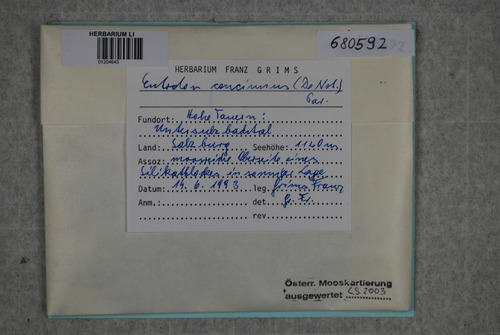 HERBARIUM LI
01204643
680592
HERBARIUM FRANZ GRIMS
Entodon concinnus (De Not.)
Par.
Fundort: Hohe Tauern:
Untersulzbachtal
Land: Salzburg Seehöhe: 1120m
Assoz: moosreiche Oberseite eines
Silikatblockes in sonniger Lage
Datum: 19.6.1993 leg. Grims Franz
Anm.: det. g. Fr.
rev.
Österr. Mooskartierung
ausgewertet CS 2003